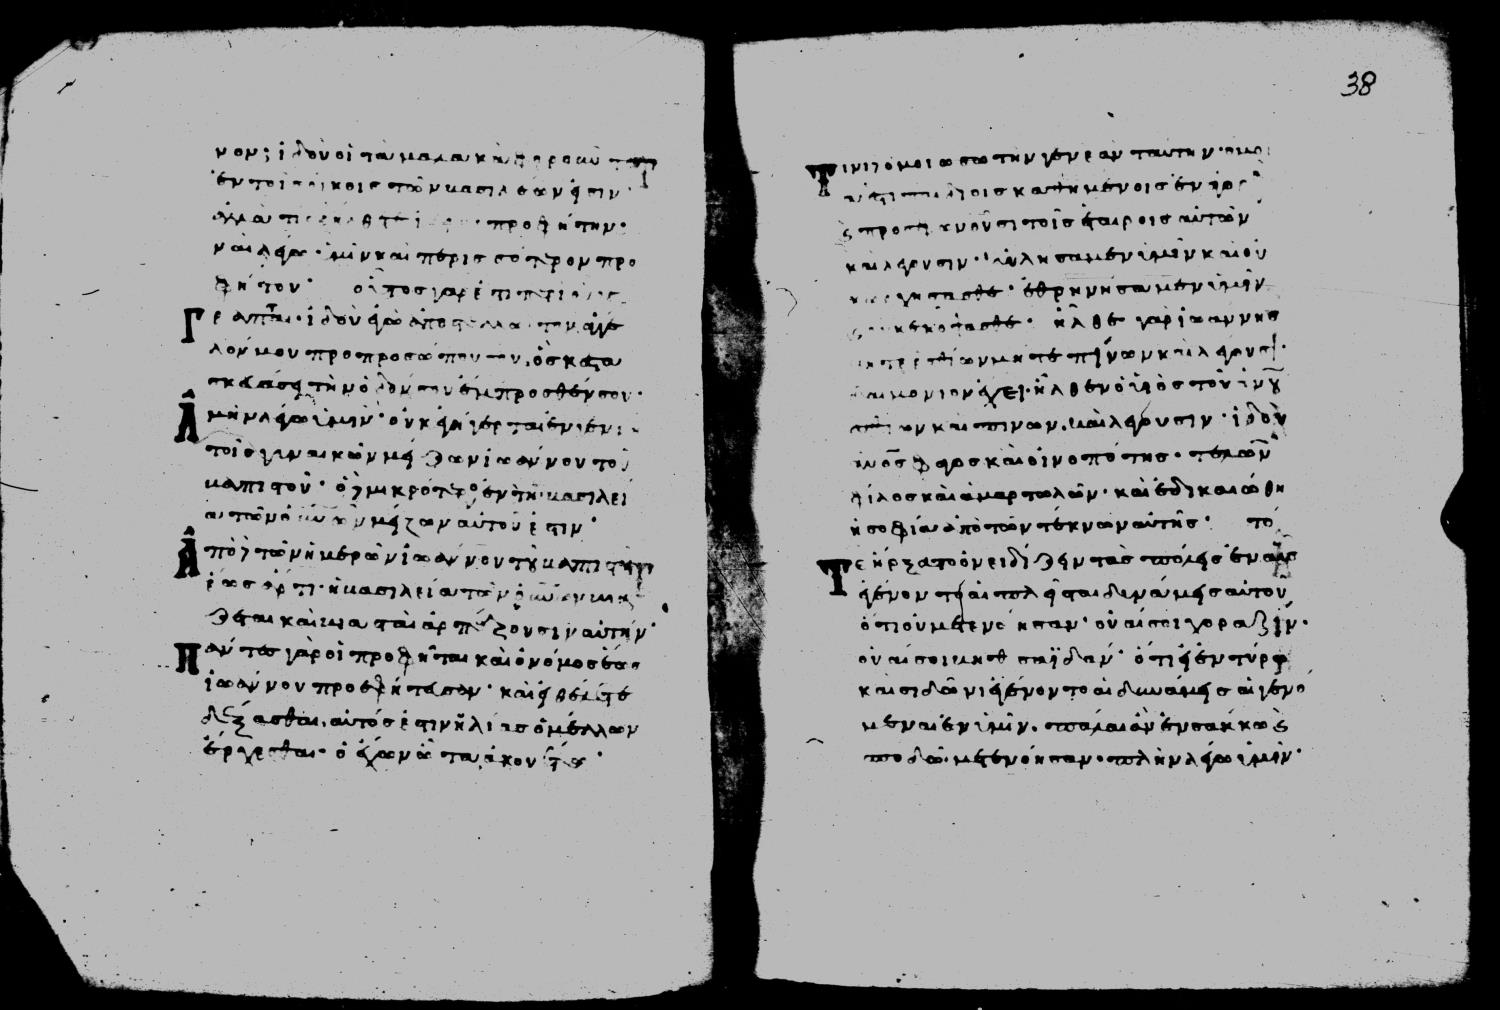 νον; ἰδοὺ οἱ τὰ μαλακὰ φοροῦντες
ἐν τοῖς οἴκοις τῶν βασιλέων εἰσίν·
ἀλλὰ τί ἐξήλθετε ἰδεῖν· προφήτην·
ναὶ λέγω ὑμῖν καὶ περισσότερον προ
φήτου· οὗτος γάρ ἐστι περὶ οὗ
γέγραπται· ἰδοὺ ἐγὼ ἀποστέλλω τὸν ἄγγε
λόν μου πρὸ προσώπου σου, ὃς κατα
σκευάσει τὴν ὁδόν σου ἔμπροσθέν σου·
Ἀμὴν λέγω ὑμῖν· οὐκ ἐγήγερται ἐν γεννη
τοῖς γυναικῶν μείζων ἰωάννου τοῦ
βαπτιστοῦ· ὁ δὲ μικρότερος ἐν τῇ βασιλεί
α τῶν οὐνῶν μείζων αὐτοῦ ἐστιν·
Ἀπὸ δὲ τῶν ἡμερῶν ἰωάννου τοῦ βαπτιστοῦ
ἕως ἄρτι ἡ βασιλεία τῶν οὐνῶν βιά
ζεται καὶ βιασταὶ ἁρπάζουσιν αὐτήν·
Πάντες γὰρ οἱ προφῆται καὶ ὁ νόμος ἕως
ἰωάννου προεφήτευσαν· καὶ εἰ θέλετε
δέξασθαι, αὐτός ἐστιν ἠλίας ὁ μέλλων
ἔρχεσθαι· ὁ ἔχων ὦτα ἀκουέτω·
38
Τίνι δὲ ὁμοιώσω τὴν γενεὰν ταύτην· ὁμοί
α ἐστὶ παιδίοις καθημένοις ἐν ἀγορᾷ
καὶ προσφωνοῦσι τοῖς ἑταίροις αὐτῶν
καὶ λέγουσιν· ηὐλήσαμεν ὑμῖν καὶ οὐκ
ὠρχήσασθε· ἐθρηνήσαμεν ὑμῖν
καὶ οὐκ ἐκόψασθε· ἦλθε γὰρ ἰωάννης
μήτε ἐσθίων μήτε πίνων καὶ λέγουσι·
δαιμόνιον ἔχει· ἦλθεν ὁ υἱὸς τοῦ ἀνου
ἐσθίων καὶ πίνων, καὶ λέγουσιν· ἰδοὺ
ἀνος φάγος καὶ οἰνοπότης· τελωνῶν
φίλος καὶ ἁμαρτωλῶν· καὶ ἐδικαιώθη
ἡ σοφία ἀπὸ τῶν τέκνων αὐτῆς· τό
Τε ἤρξατο ὀνειδίζειν τὰς πόλεις ἐν αἷς
ἐγένοντο αἱ πλεῖσται δυνάμεις αὐτοῦ
ὅτι οὐ μετενόησαν· οὐαί σοι χοραζίν·
οὐαί σοι βηθσαϊδάν· ὅτι εἰ ἐν τύρῳ
καὶ σιδῶνι ἐγένοντο αἱ δυνάμεις αἱ γενό
μεναι ἐν ὑμῖν, πάλαι ἂν ἐν σάκκῳ καὶ
σποδῷ μετενόησαν· πλὴν λέγω ὑμῖν·